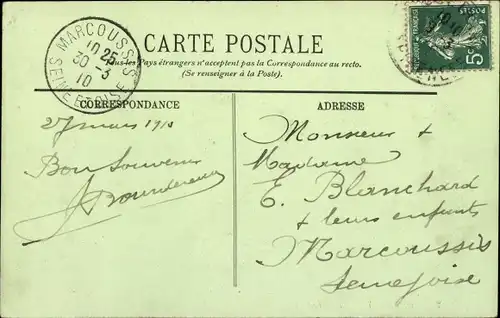 MARCOUSSIS
10 25
30 - 3
10
SEINE ET OISE
POSTES
5c
CARTE POSTALE
Tous les Pays étrangers n'acceptent pas la Correspondance au recto.
(Se renseigner à la Poste).
CORRESPONDANCE
27 mars 1910
Bon Souvenir
ADRESSE
Monsieur &
Madame
E. Blanchard
& leurs enfants
Marcoussis
Seine & Oise